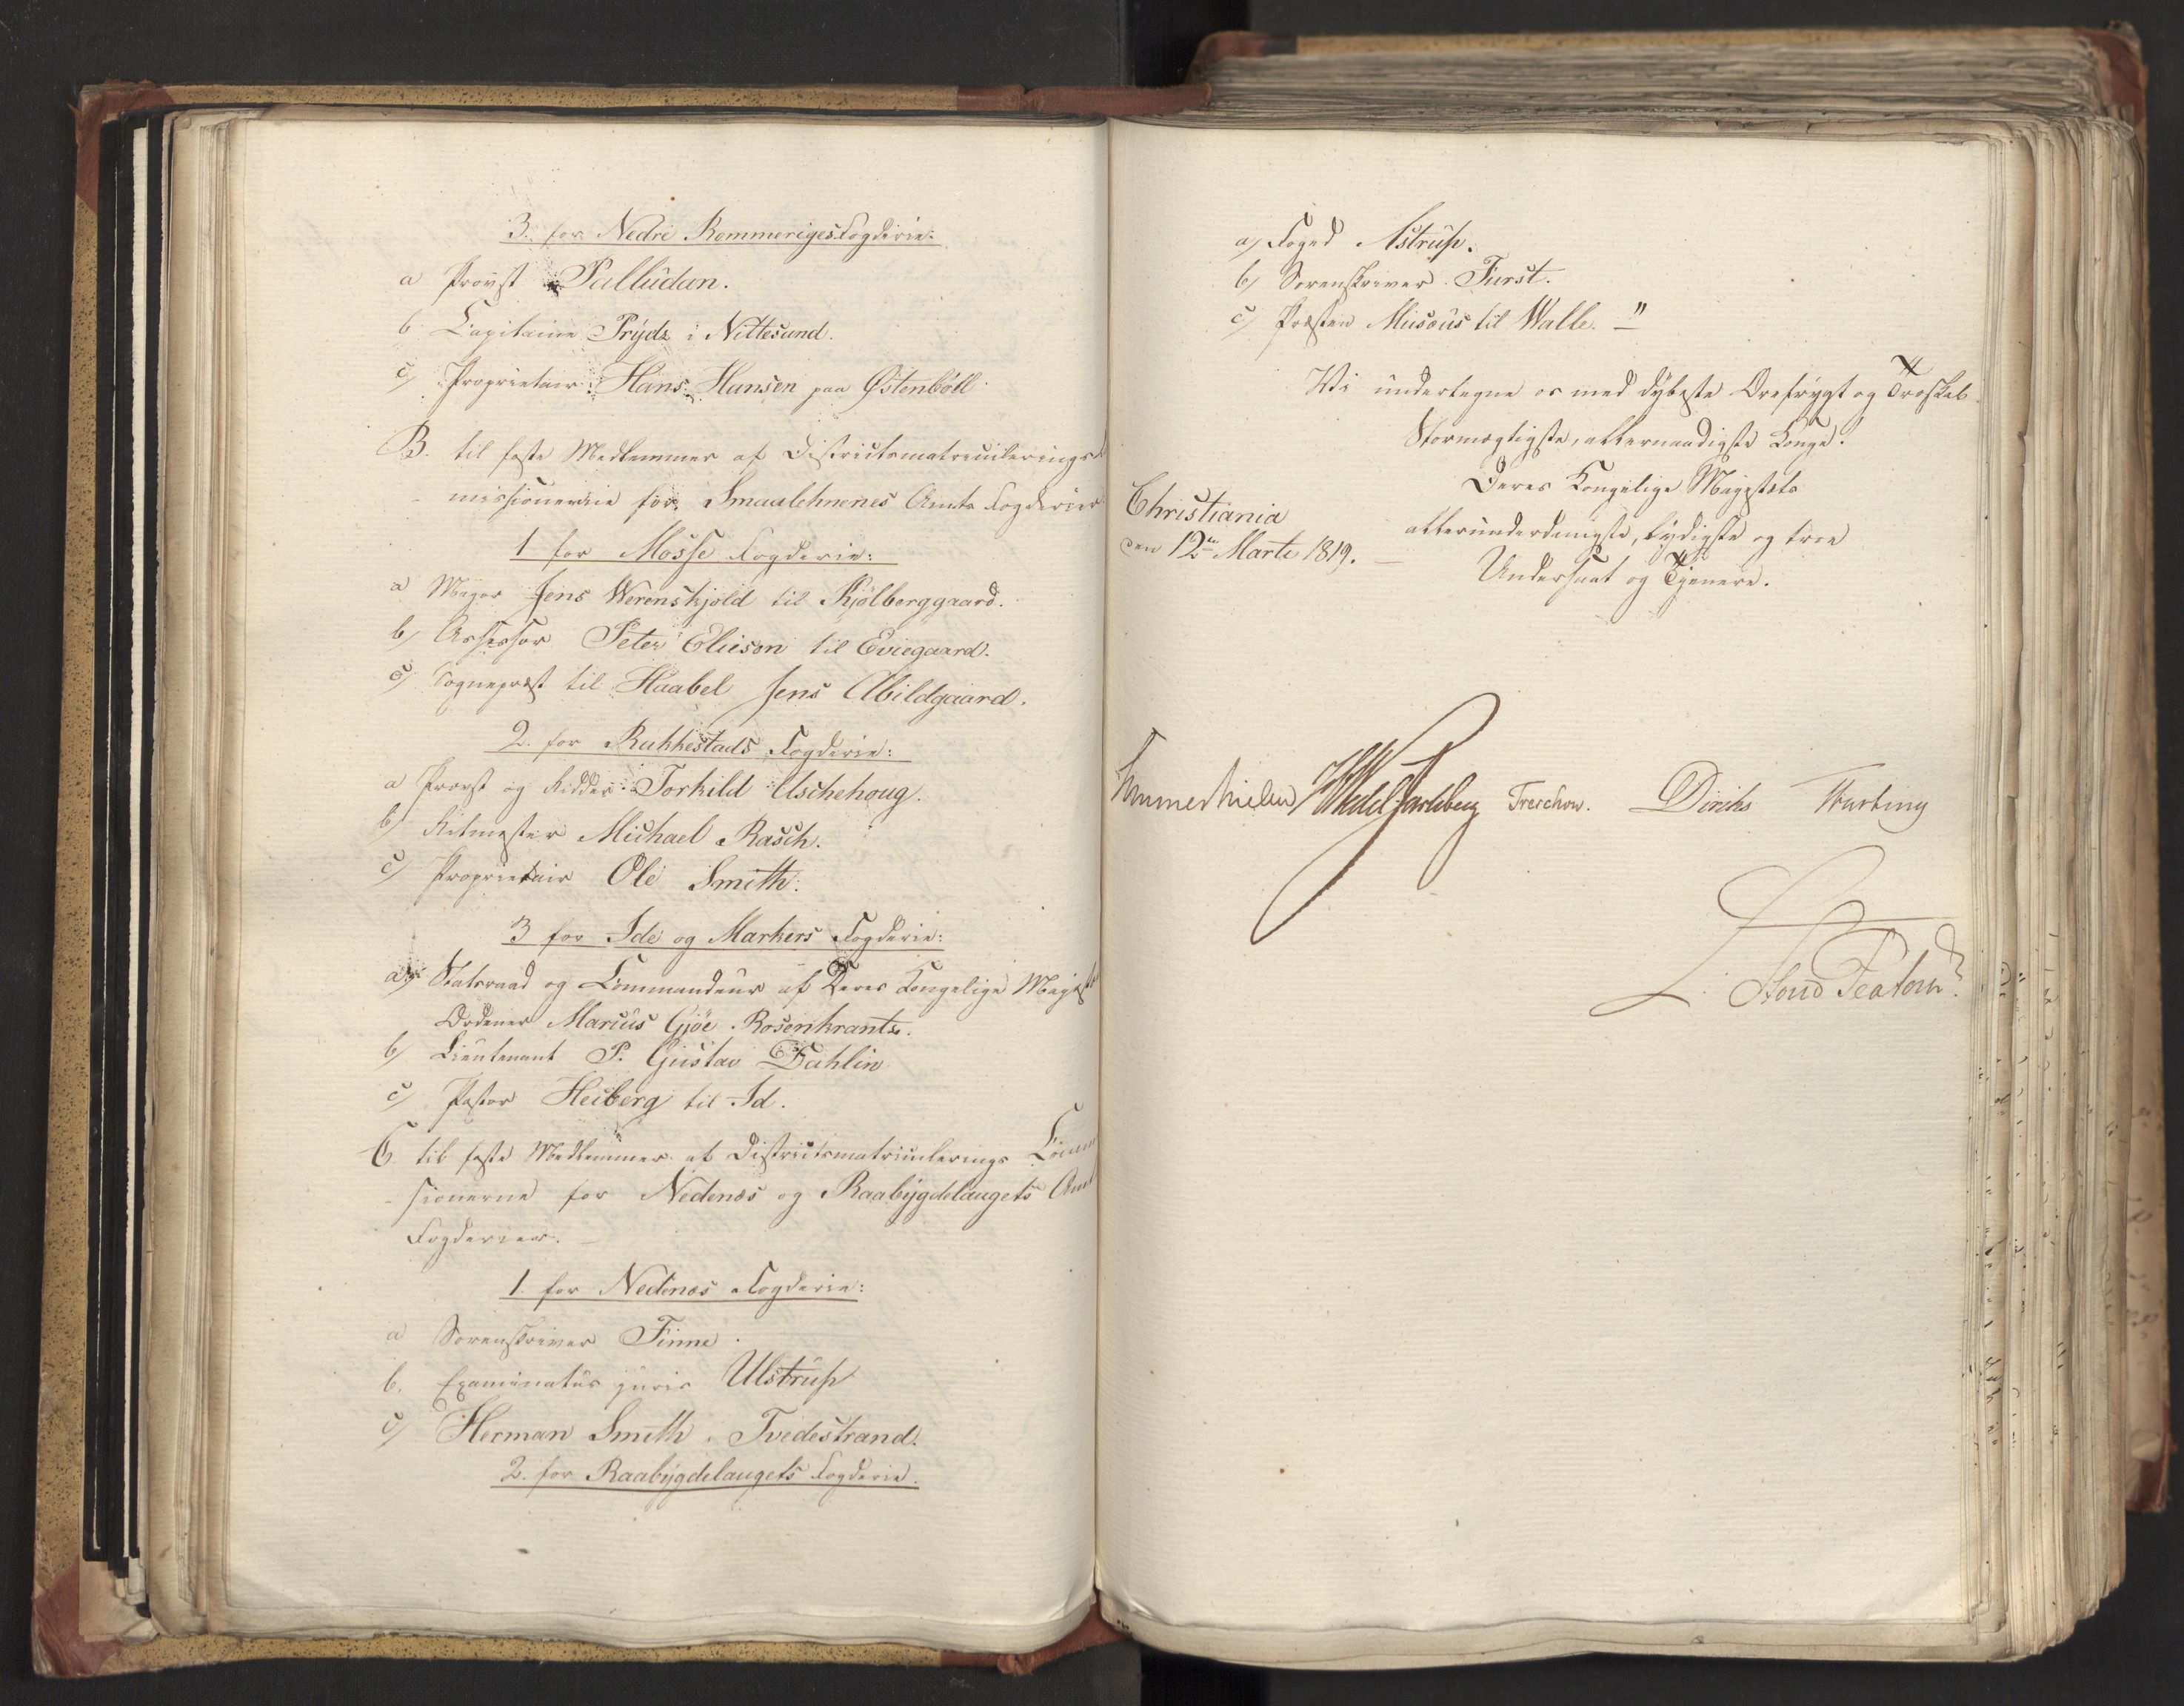 3. for Nedre Rommeriges Fogderie:
a Provst Palludan.
b. Capitaine Prydz i Nittesund.
c) Proprietair Hans Hansen paa Østenböll.
B. til faste Medlemmer af Districtsmatriculerings
missionerne for Smaalehnenes Amts Fogderier
1 for Mosse Fogderie:
a Major Jens Werenskjold til Kjölberggaard.
b) Assessor Peter Elieson til Eviegaard.
c) Sognepræst til Haabel Jens Abildgaard.
2. for Rakkestads Fogderie:
a Provst og Ridder Torkild Aschehoug.
b) Ritmester Michael Rasch.
c) Proprietair Ole Smith.
3 for Ide og Markers Fogderie:
a) Statsraad og Commandeur af Deres Kongelige Majest
Ordener Marcus Gjöe Rosenkrantz.
b) Lieutenant P. Gustav Dahlin
c) Pastor Heiberg til Id.
C. til faste Medlemmer af Districtsmatriculerings Comm
sionerne for Nedenæs og Raabygdelaugets Amt
Fogderier.
1. for Nedenæs Fogderie:
a Sorenskriver Finne.
b. Examinatus juris Ulstrup
c) Herman Smith i Tvedestrand.
2. for Raabygdelaugets Fogderie.
a) Foged Astrup.
b) Sorenskriver Furst.
c) Præsten Musæus til Walle. "
Vi undertegne os med dybeste Ærefrygt og Troskab
Stormægtigste, allernaadigste Konge!
Deres Kongelige Majestæts
Christiania
den 12te Marts 1819.
allerunderdanigste, lydigste og troe
Undersaat og Tjenere.
Sommerhielm HWedel Jarlsberg Treschow. Diriks Fasting